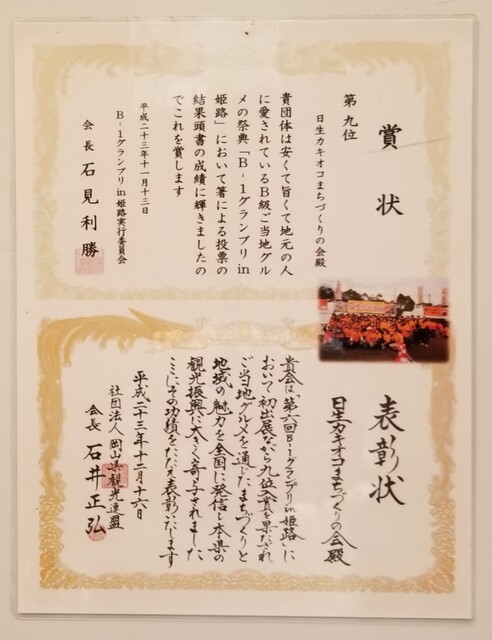 賞状
第九位
日生カキオコまちづくりの会殿
貴団体は安くて旨くて地元の人
に愛されているB級ご当地グル
メの祭典「B-1グランプリin
姫路」において箸による投票の
結果頭書の成績に輝きましたの
でこれを賞します
平成二十三年十一月十三日
B-1グランプリin姫路実行委員会
会長 石見利勝
表彰状
日生カキオコまちづくりの会殿
貴会は、「第六回B-1グランプリin姫路」に
おいて初出展ながら九位入賞を果たされ
ご当地グルメを通じたまちづくりと
地域の魅力を全国に発信し本県の
観光振興に大きく寄与されました
ここにその功績をたたえ表彰いたします
平成二十三年十二月十六日
社団法人 岡山県観光連盟
会長 石井正弘